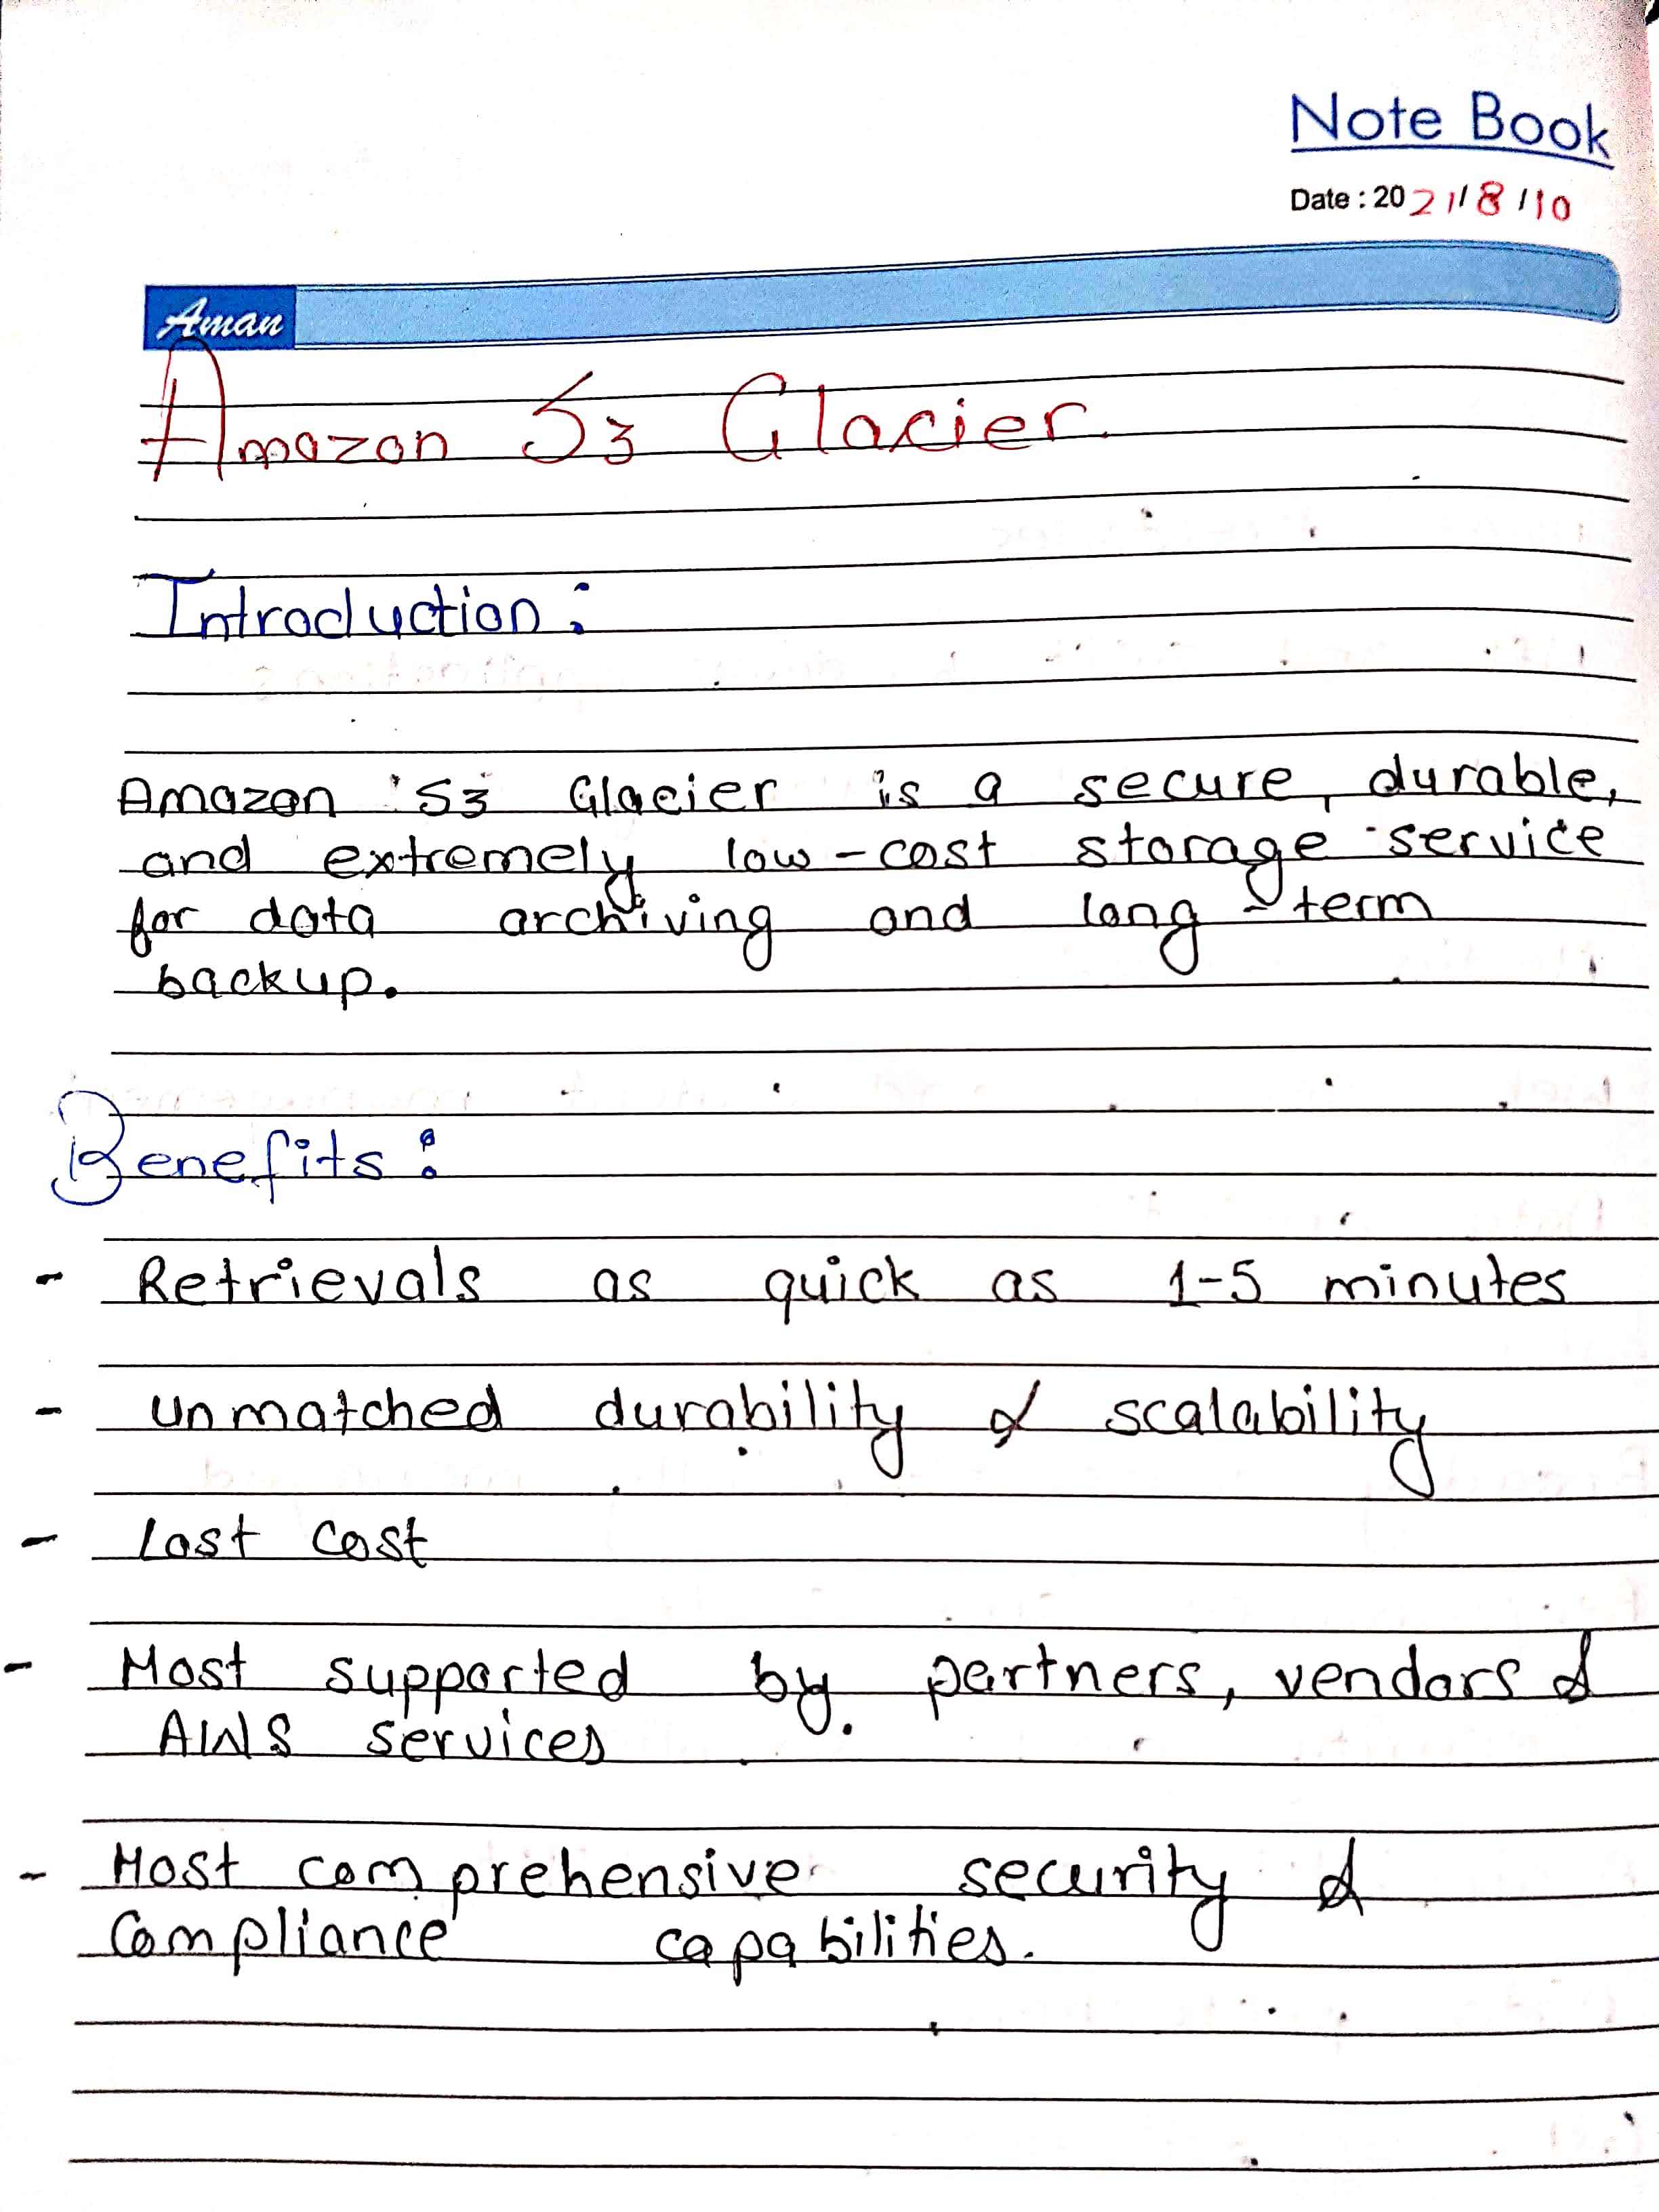 Note Book
Date : 2021/8/10
Aman
Amazon S3 Glacier
Introduction :
Amazon S3 Glacier is a secure, durable,
and extremely low-cost storage service
for data archiving and long-term
backup.
Benefits :
- Retrievals as quick as 1-5 minutes
- unmatched durability & scalability
- Lost cost
- Most supported by partners, vendors &
AWS services
- Most comprehensive security &
Compliance capabilities.